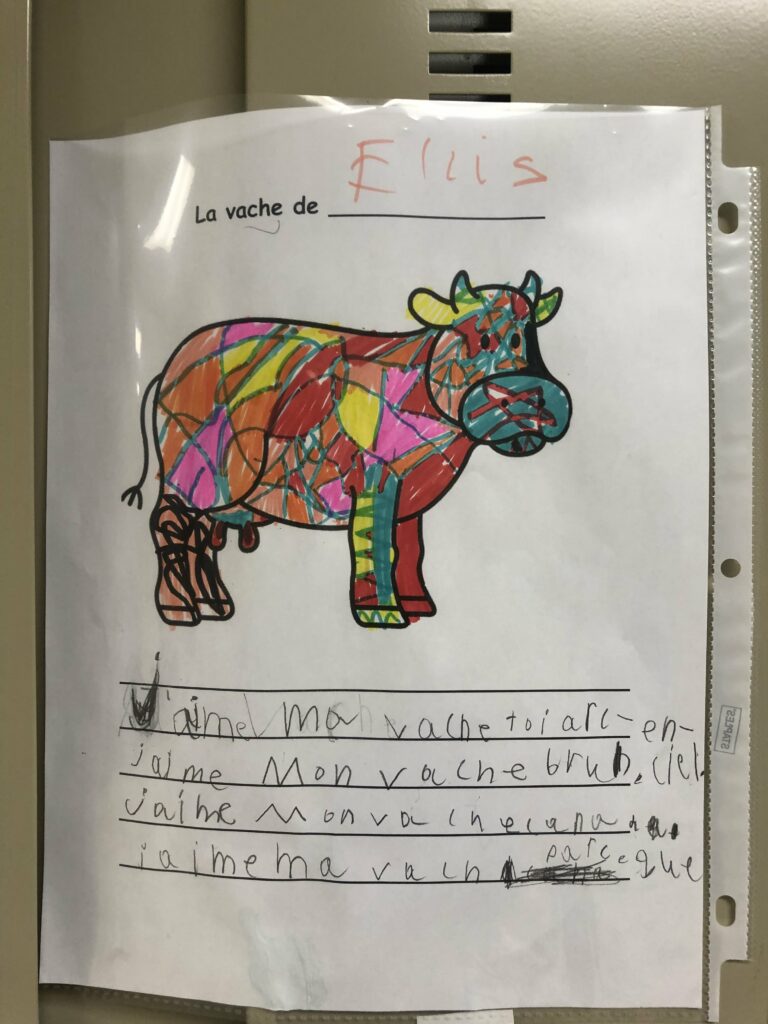 Ellis
La vache de
J'aime ma vache toi arc-en-
jaime Mon vache brun. ciel.
jaime Mon vache
jaime ma vach parceque
STAPLES